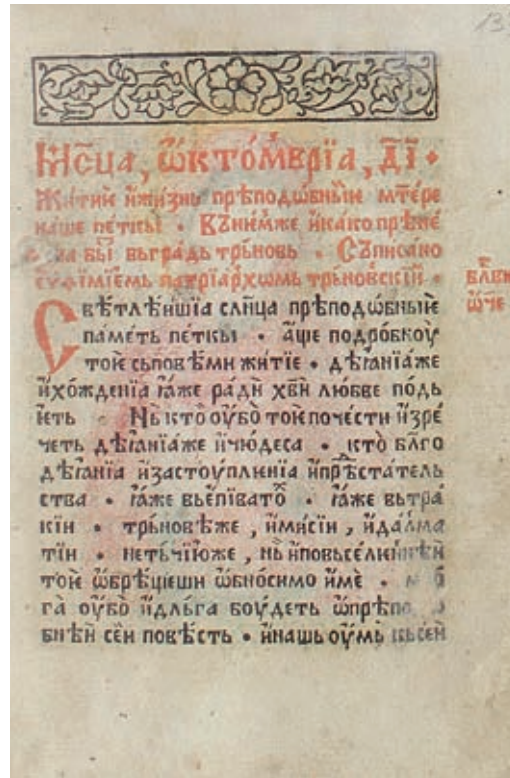 13
Мⷭ҇ца, ѡ҆кто́мврїа, д҃і •
Житиѥ и҆жизнь прѣподѡбныѥ мт҃ере
наше петкы • Въ нѥмже и҆како прѣне
на быⷭ҇ вьградь трьновь • Съписано
еѵфїмїемь патрїархѡмь трьновскїй •
бл҃ви
ѿче
Свѣтлѣишїа сл҃нца прѣподѡбныѥ
паметь петкы • а҆ще подробноу
тоѥ сьповѣми житїе • дѣꙗнїаже
и҆хожденїа ꙗ҆же ради хв҃и любве подь
ѥть Нь кто оу҆бо тоѥ почести и҆зре
четь дѣꙗнїаже и҆чюдеса • кто бл҃го
дѣꙗнїа и҆застоуплѥнїа и҆прⷣѣстатель
ства • ꙗ҆же вьѥпїватоⷯ • ꙗ҆же вьтра
кїи • трьновѣже, и҆мисїи, и҆далма
тїи • нетьчїюже, нь и҆повьселѥннѣй
тоѥ ѡ҆брѣщеши ѡ҆бносимо и҆ме •
га оу҆бо и҆дльга боудеть ѡ҆прѣпо
бнѣй сей повѣсть • и҆нашь оу҆мь кьсей